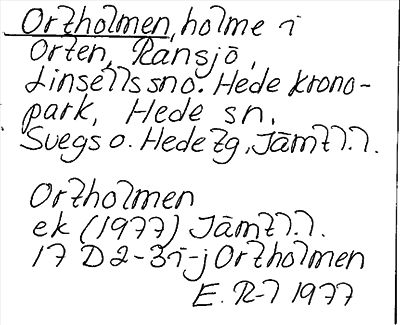 Ortholmen, holme i
Orten, Ransjö,
Linsells sn o. Hede krono-
park, Hede sn,
Svegs o. Hede tg, Jämtl.l.
Ortholmen
ek (1977) Jämtl.l.
17 D 2-3 i-j Ortholmen
E. R-l 1977